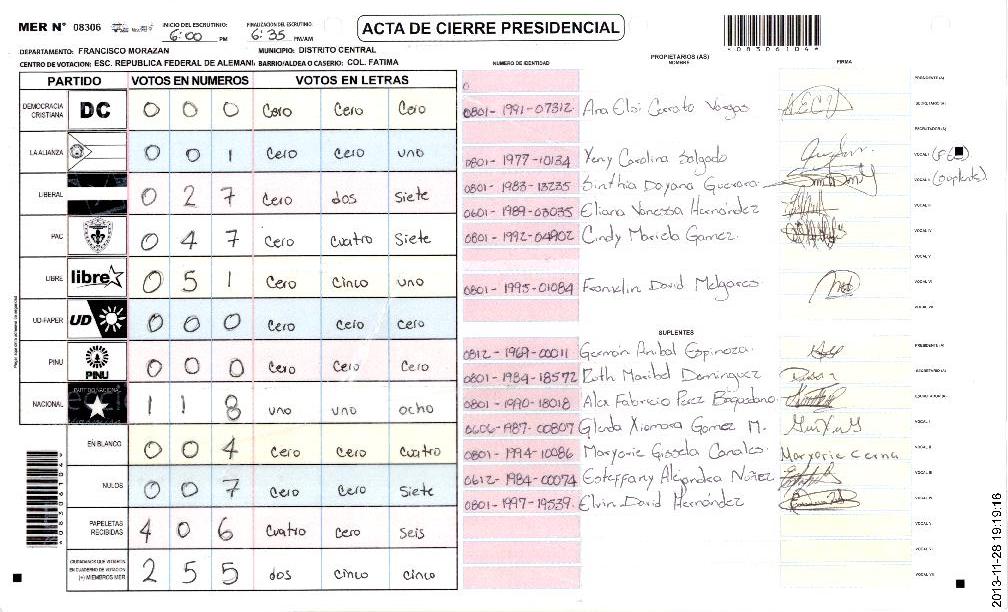 MER Nº 08306 INICIO DEL ESCRUTINIO: 6:00 PM FINALIZACION DEL ESCRUTINIO: 6:35 PM/AM ACTA DE CIERRE PRESIDENCIAL
*08306104*
DEPARTAMENTO: FRANCISCO MORAZAN MUNICIPIO: DISTRITO CENTRAL
CENTRO DE VOTACION: ESC. REPUBLICA FEDERAL DE ALEMANI BARRIO/ALDEA O CASERIO: COL. FATIMA
PARTIDO VOTOS EN NUMEROS VOTOS EN LETRAS
DEMOCRACIA CRISTIANA DC 0 0 0 Cero Cero Cero
LA ALIANZA 0 0 1 Cero cero uno
LIBERAL 0 2 7 Cero dos Siete
PAC 0 4 7 Cero cuatro Siete
LIBRE libre 0 5 1 Cero Cinco uno
UD-FAPER UD 0 0 0 Cero Cero cero
PINU PINU 0 0 0 Cero Cero Cero
NACIONAL PARTIDO NACIONAL 1 1 8 uno uno ocho
EN BLANCO 0 0 4 Cero Cero cuatro
NULOS 0 0 7 Cero Cero Siete
PAPELETAS RECIBIDAS 4 0 6 Cuatro Cero seis
CIUDADANOS QUE VOTARON EN CUADERNO DE VOTACION (+) MIEMBROS MER 2 5 5 dos cinco cinco
NUMERO DE IDENTIDAD PROPIETARIOS (AS) NOMBRE FIRMA
PRESIDENTE (A)
0801-1991-07312 SECRETARIO (A)
ESCRUTADOR (A)
0801-1977-10134 Yeny Carolina Salgado VOCAL I
0801-1983-13235 VOCAL II (Suplente)
0601-1989-03035 Eliana Vanessa Hernández VOCAL III
0801-1992-04902 Cindy Mariela Gomez. VOCAL IV
VOCAL V
0801-1995-01084 Franklin David Melgares VOCAL VI
VOCAL VII
SUPLENTES
0812-1969-00011 Germán Anibal Espinoza. PRESIDENTE (A)
0801-1984-18572 Ruth Maribel Dominguez SECRETARIO (A)
0801-1990-18018 Alex Fabricio Perez Baquedano. ESCRUTADOR (A)
0606-1987-00807 Glenda Xiomara Gomez M. VOCAL I
0801-1994-10086 Maryorie Gissela Canales. Maryorie Cerna VOCAL II
0612-1984-00074 Esteffany Alejandra Núñez VOCAL III
0801-1997-19539. Elvin David Hernández VOCAL IV
VOCAL V
VOCAL VI
VOCAL VII
2013-11-28 19:19:16